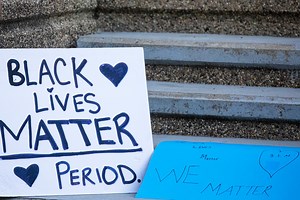 BLACK
LIVES
MATTER
PERIOD.
Matter
WE
MATTER